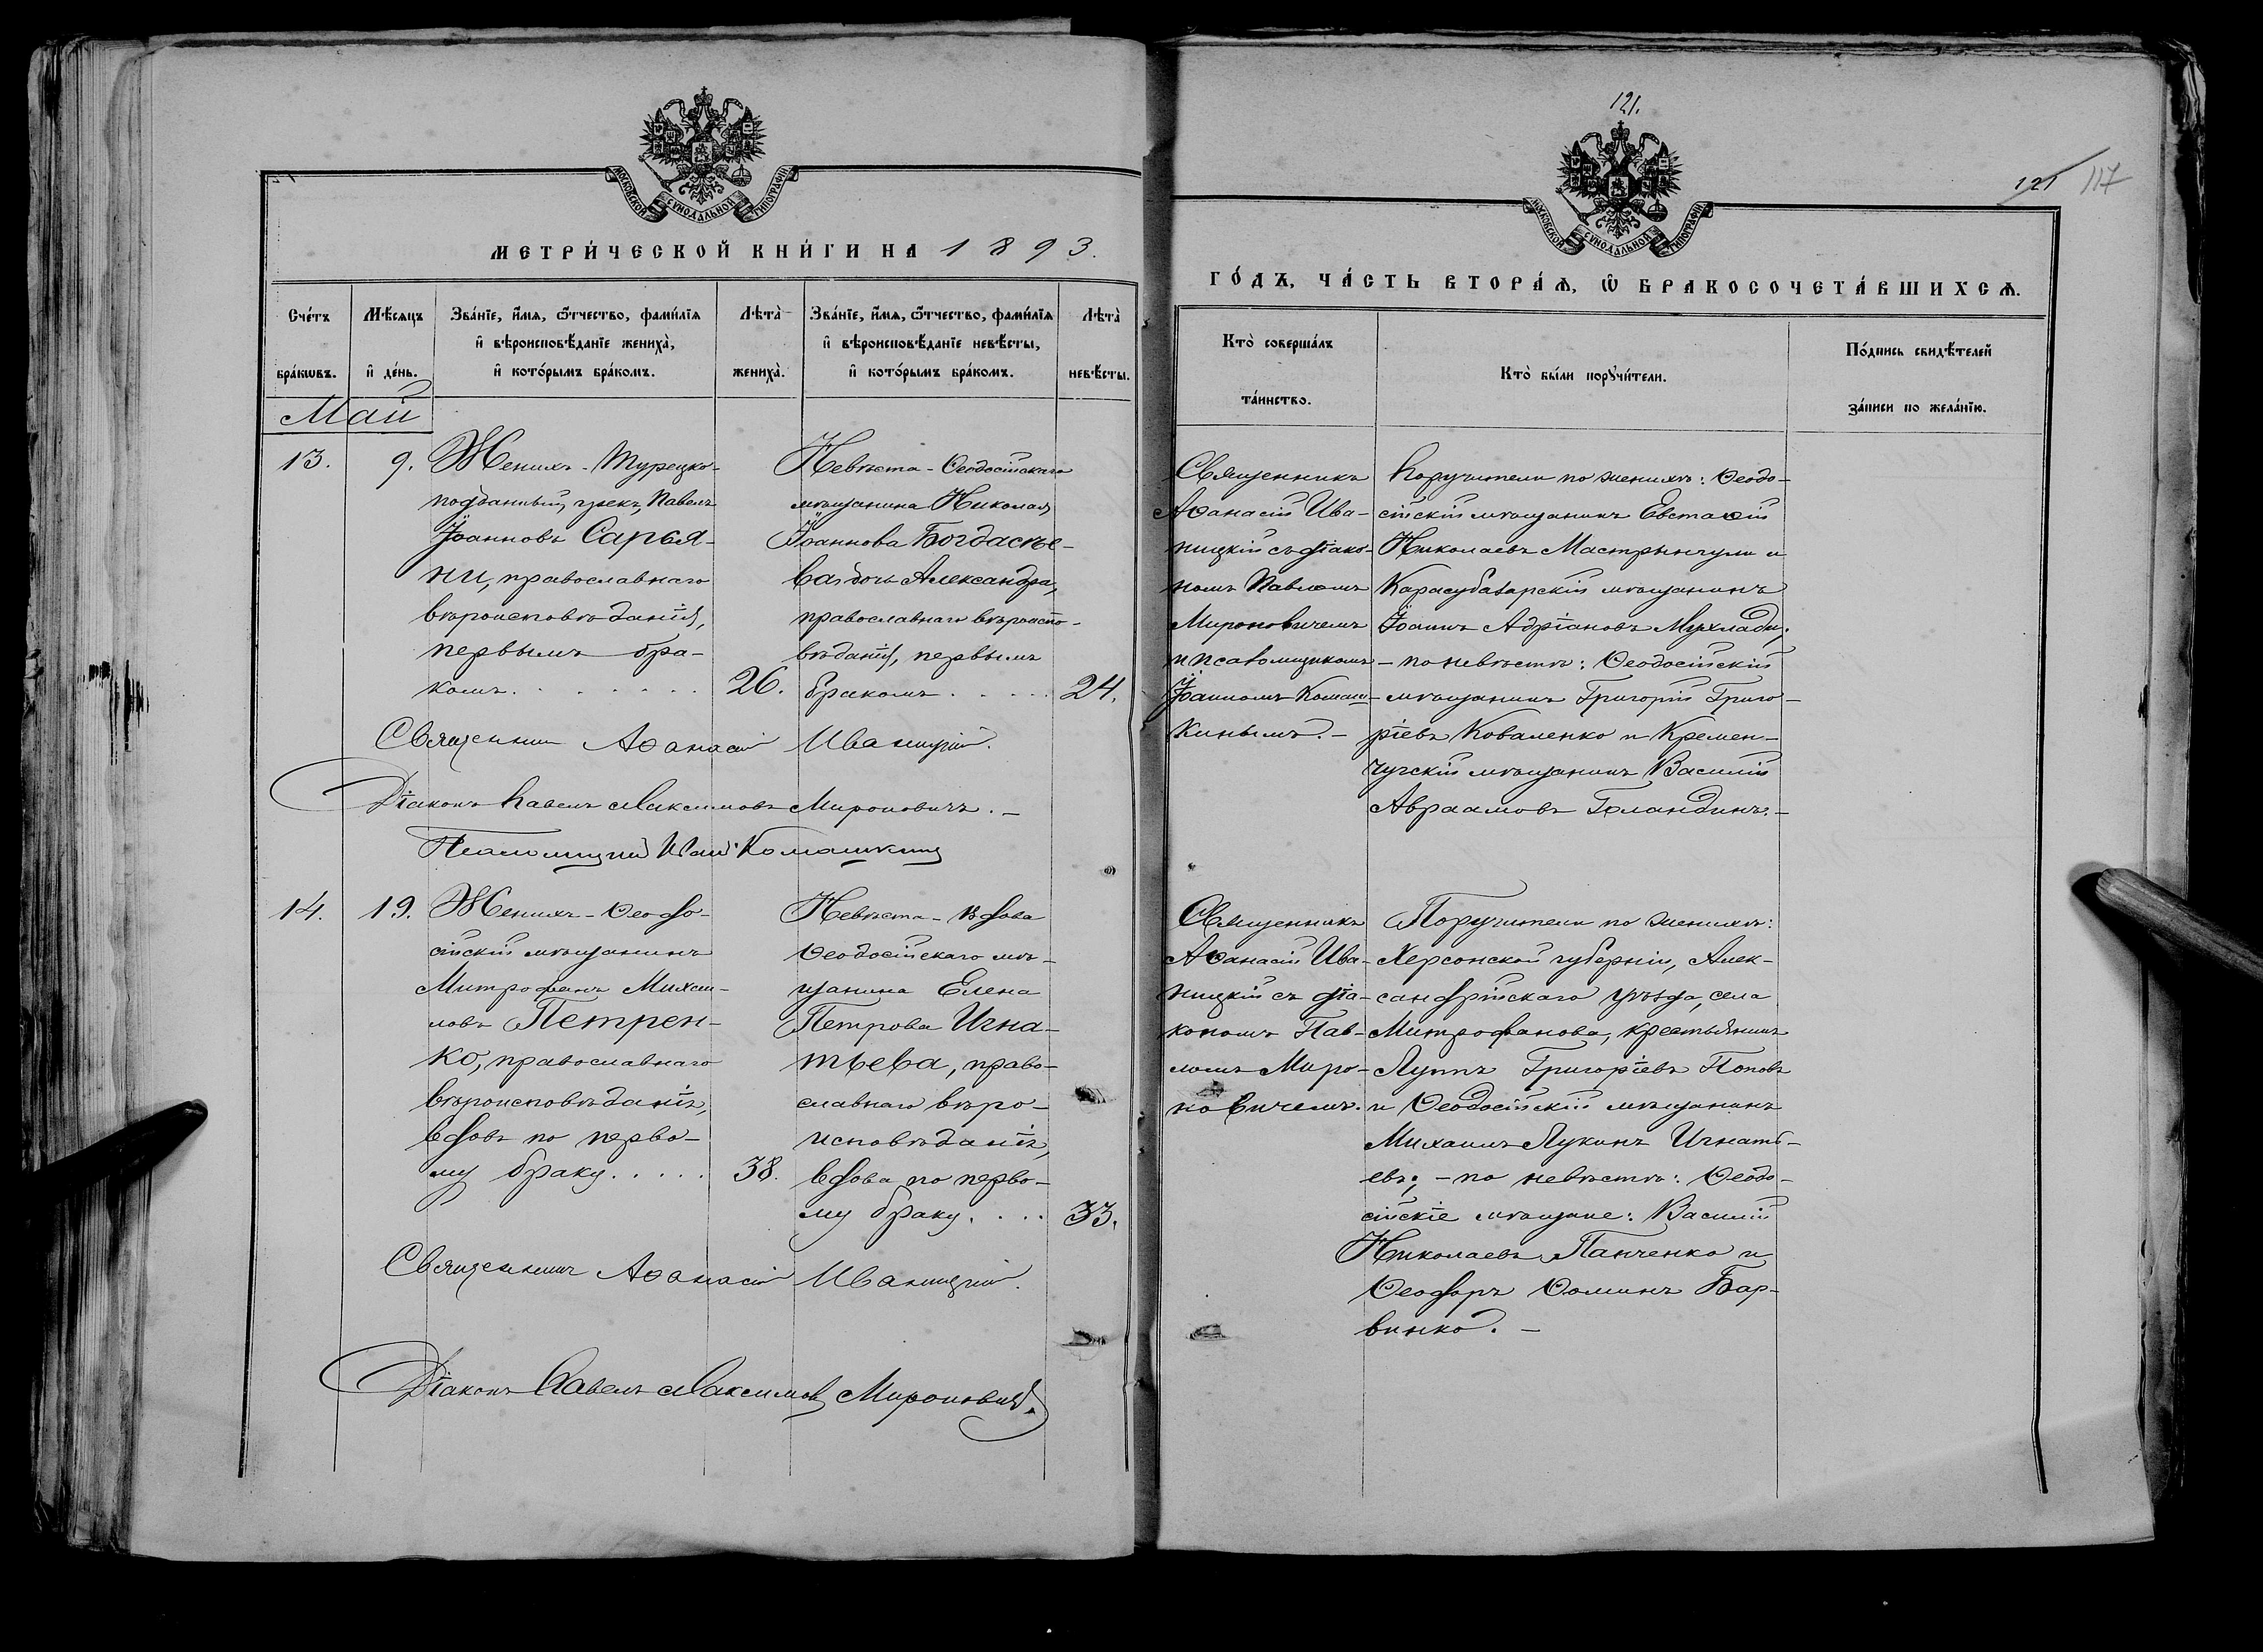 МОСКОВСКОЙ СѴНОДАЛЬНОЙ ТИПОГРАФІИ
МЕТРИ́ЧЕСКОЙ КНИ́ГИ НА 1893.
Сче́тъ бра́кѡвъ.
Мѣ́сяцъ и҆ де́нь.
Зва́нїе, и҆́мя, ѻ҆́тчество, фами́лїя
и҆ вѣроисповѣ́данїе жениха̀,
и҆ кото́рымъ бра́комъ.
Лѣта̀ жениха̀.
Зва́нїе, и҆́мя, ѻ҆́тчество, фами́лїя
и҆ вѣроисповѣ́данїе невѣ́сты,
и҆ кото́рымъ бра́комъ.
Лѣта̀ невѣ́сты.
Май
13.
9.
Женихъ - Турецко-
подданный, грекъ, Павелъ
Іоанновъ Сарья-
ни, православнаго
вѣроисповѣданія,
первымъ бра-
комъ. . . . . . . .
26.
Невѣста - Ѳеодосійскаго
мѣщанина Николая
Іоаннова Богдасье-
ва дочь Александра,
православнаго вѣроиспо-
вѣданія, первымъ
бракомъ. . . . .
24.
Священникъ Аѳанасій Иваницкій.
Діаконъ Павелъ Максимовъ Мироновичъ. -
Псаломщикъ Иванъ Комашкинъ
14.
19.
Женихъ - Ѳеодо-
сійскій мѣщанинъ
Митрофанъ Михаи-
ловъ Петрен-
ко, православнаго
вѣроисповѣданія,
вдовъ по перво-
му браку. . . . .
38.
Невѣста - вдова
Ѳеодосійскаго мѣ-
щанина Елена
Петрова Игна-
тьева, право-
славнаго вѣро-
исповѣданія,
вдова по перво-
му браку. . . .
33.
Священникъ Аѳанасій Иваницкій.
Діаконъ Павелъ Максимовъ Мироновичъ.
121.
121 117
МОСКОВСКОЙ СѴНОДАЛЬНОЙ ТИПОГРАФІИ
ГО́ДЪ, ЧА́СТЬ ВТОРА́Я, Ѽ БРАКОСОЧЕТА́ВШИХСЯ.
Кто̀ соверша́лъ
та́инство.
Кто̀ бы́ли порꙋчи́тели.
По́дпись свидѣ́телей
за́писи по жела́нїю.
Священникъ
Аѳанасій Ива-
ницкій съ діако-
номъ Павломъ
Мироновичемъ
и псаломщикомъ
Іоанномъ Комаш-
кинымъ. -
Поручители по женихѣ: Ѳеодо-
сійскій мѣщанинъ Евстаѳій
Николаевъ Мастрынчули и
Карасубазарскій мѣщанинъ
Іоаннъ Адріановъ Мухлади;
- по невѣстѣ: Ѳеодосійскій
мѣщанинъ Григорій Григо-
ріевъ Коваленко и Кремен-
чугскій мѣщанинъ Василій
Авраамовъ Голандинъ. -
Священникъ
Аѳанасій Ива-
ницкій съ діа-
кономъ Пав-
ломъ Миро-
новичемъ.
Поручители по женихѣ:
Херсонской губерніи, Алек-
сандрійскаго уѣзда, села
Митрофанова, крестьянинъ
Луппъ Григоріевъ Поповъ
и Ѳеодосійскій мѣщанинъ
Михаилъ Лукинъ Игнать-
евъ; - по невѣстѣ: Ѳеодо-
сійскіе мѣщане: Василій
Николаевъ Панченко и
Ѳеодоръ Ѳоминъ Бар-
винко. -